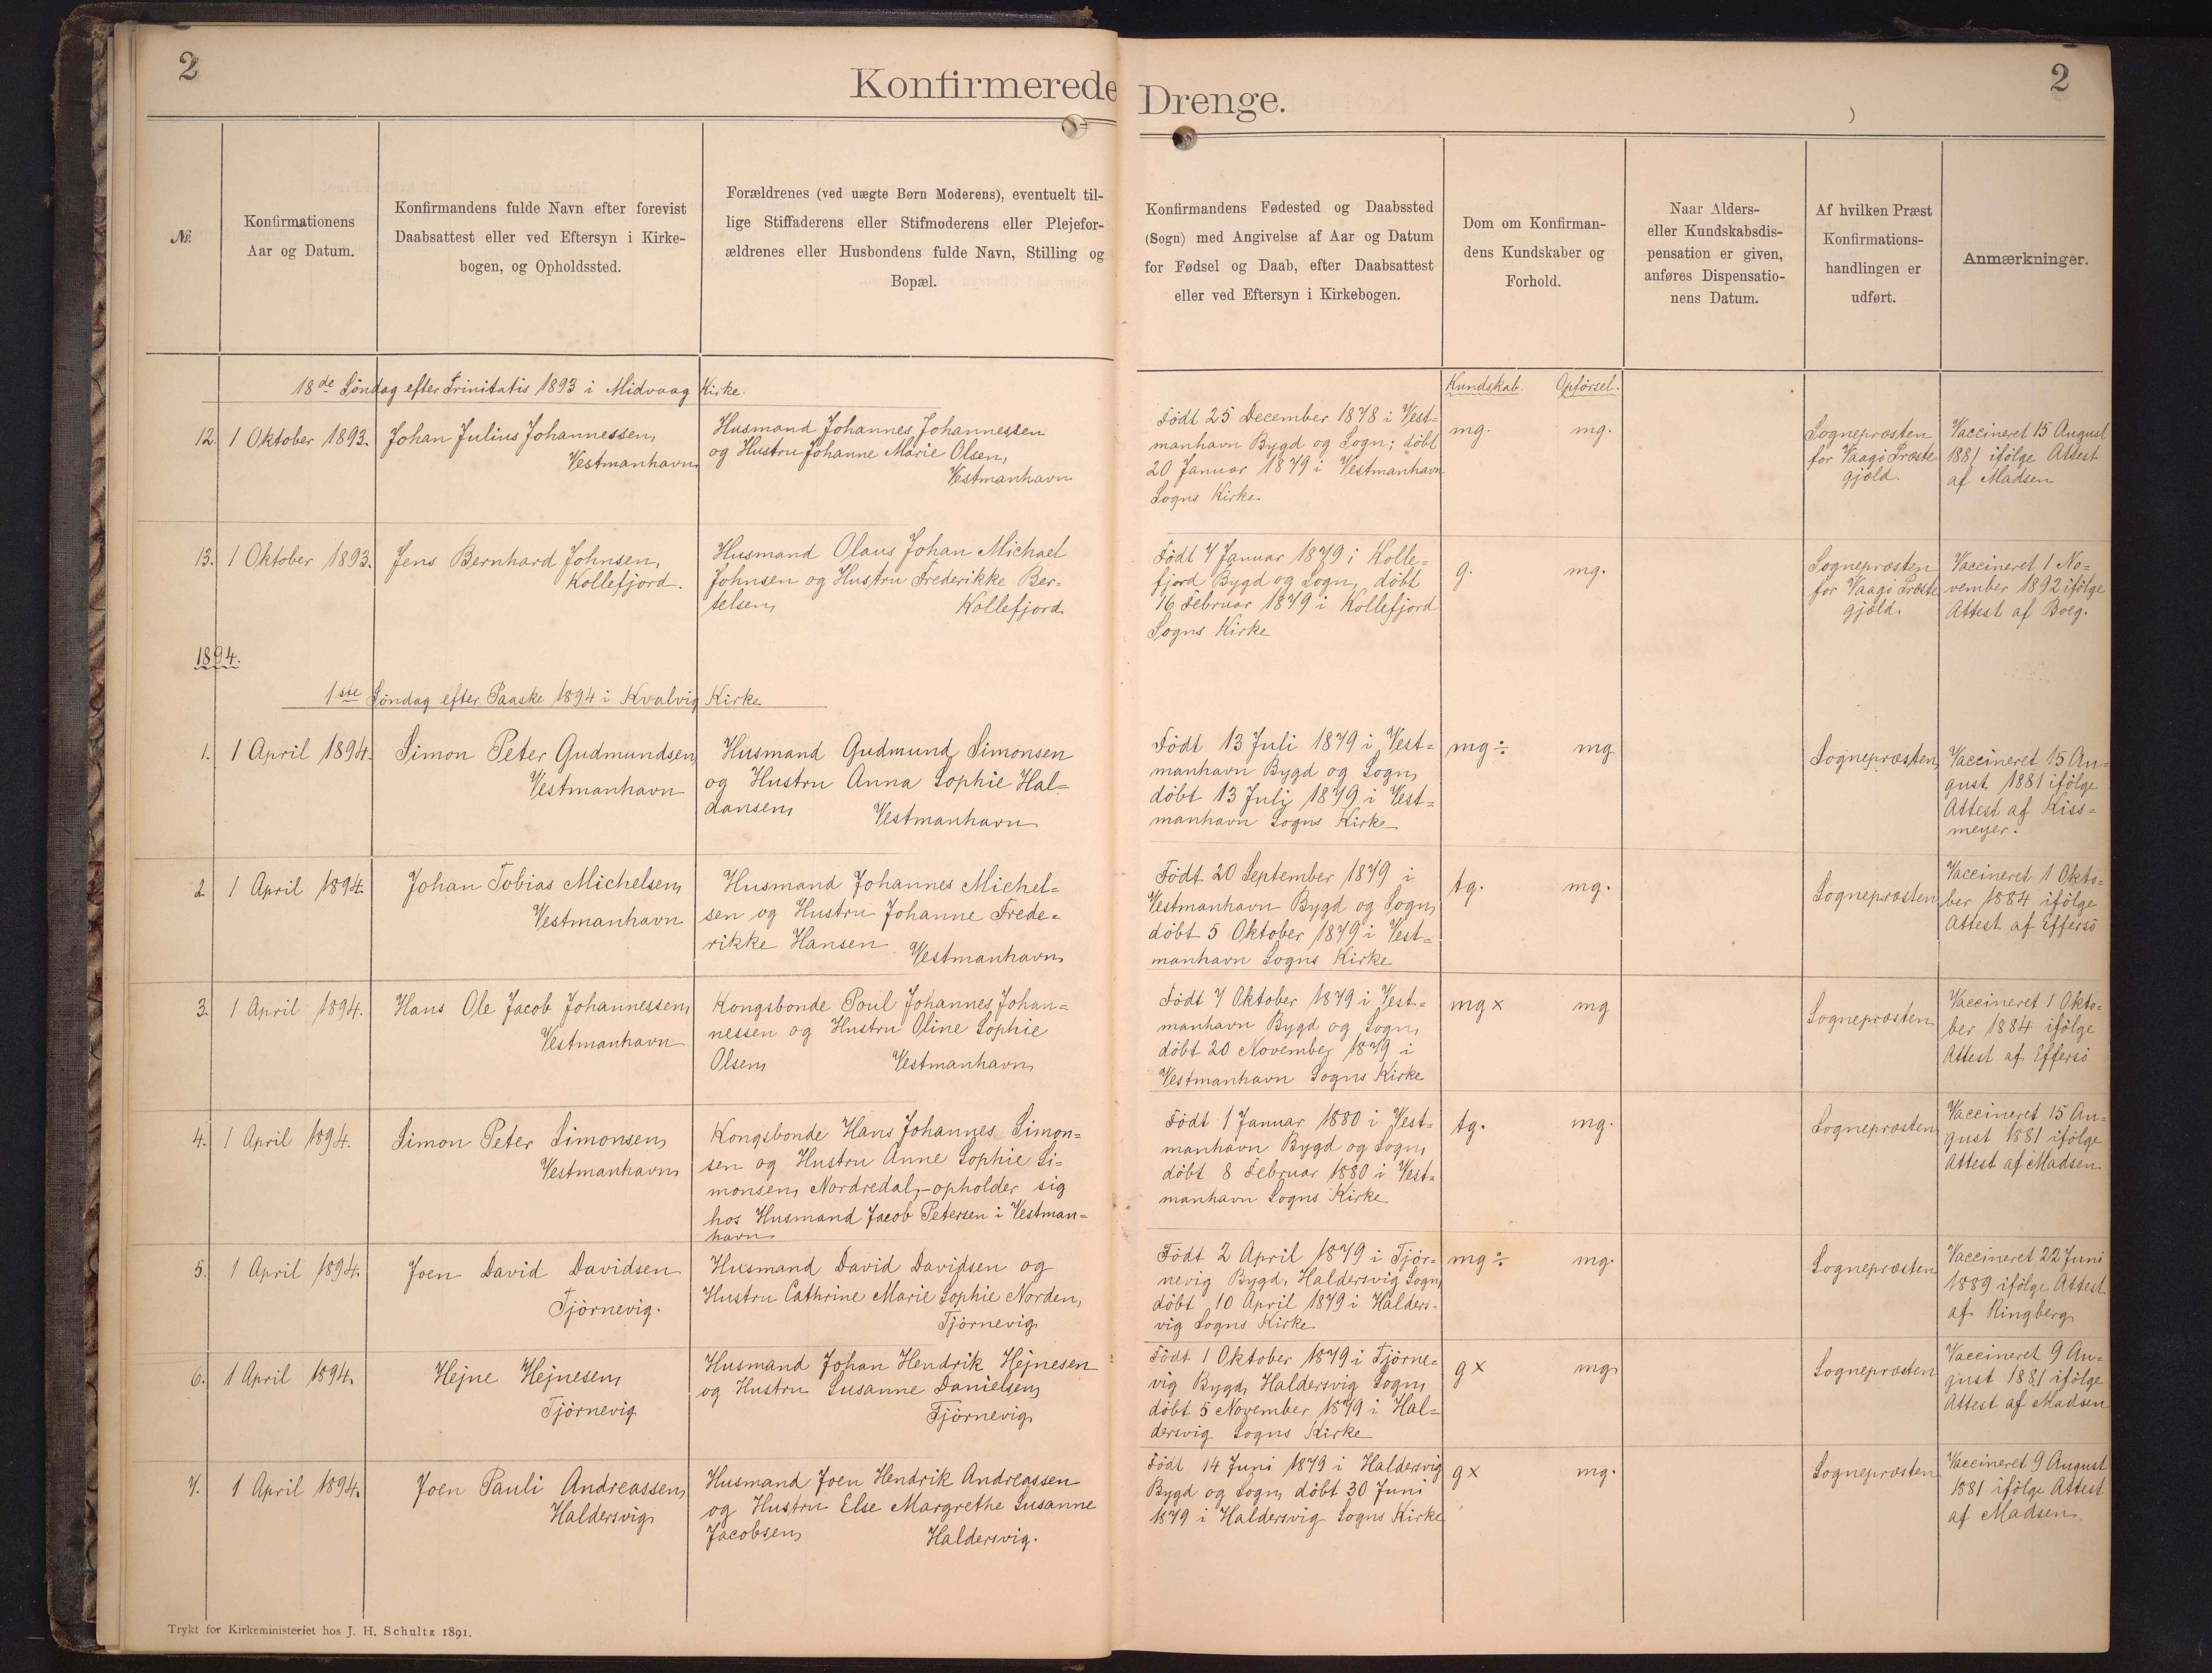 2
Konfirmerede
Drenge.
2
№.
Konfirmationens
Aar og Datum.
Konfirmandens fulde Navn efter forevist
Daabsattest eller ved Eftersyn i Kirke-
bogen, og Opholdssted.
Forældrenes (ved uægte Børn Moderens), eventuelt til-
lige Stiffaderens eller Stifmoderens eller Plejefor-
ældrenes eller Husbondens fulde Navn, Stilling og
Bopæl.
Konfirmandens Fødested og Daabssted
(Sogn) med Angivelse af Aar og Datum
for Fødsel og Daab, efter Daabsattest
eller ved Eftersyn i Kirkebogen.
Dom om Konfirman-
dens Kundskaber og
Forhold.
Naar Alders-
eller Kundskabsdis-
pensation er given,
anføres Dispensatio-
nens Datum.
Af hvilken Præst
Konfirmations-
handlingen er
udført.
Anmærkninger.
18de Söndag efter Trinitatis 1893 i Midvaag Kirke.
Kundskab. Opförsel.
12. 1 Oktober 1893.
Johan Julius Johannessen,
Vestmanhavn
Husmand Johannes Johannessen
og Hustru Johanne Marie Olsen,
Vestmanhavn
Födt 25 December 1878 i Vest=
manhavn Bygd og Sogn; döbt
20 Januar 1879 i Vestmanhavn
Sogns Kirke.
mg. mg.
Sognepræsten
for Vaagö Præste-
gjæld.
Vaccineret 15 August
1881 ifölge Attest
af Madsen
13. 1 Oktober 1893.
Jens Bernhard Johnsen,
Kollefjord.
Husmand Olaus Johan Michael
Johnsen og Hustru Frederikke Ber=
telsen,
Kollefjord.
Födt 7 Januar 1879 i Kolle=
fjord Bygd og Sogn, döbt
16 Februar 1879 i Kollefjord
Sogns Kirke
g. mg.
Sognepræsten
for Vaagö Præste
gjæld.
Vaccineret 1 No=
vember 1892 ifölge
Attest af Boeg.
1894.
1ste Söndag efter Paaske 1894 i Kvalvig Kirke
1. 1 April 1894.
Simon Peter Gudmundsen,
Vestmanhavn
Husmand Gudmund Simonsen
og Hustru Anna Sophie Hal=
dansen,
Vestmanhavn
Födt 13 Juli 1879 i Vest=
manhavn Bygd og Sogn,
döbt 13 Juli 1879 i Vest=
manhavn Sogns Kirke
mg ÷ mg
Sognepræsten,
Vaccineret 15 Au=
gust 1881 ifölge
Attest af Kiss=
meyer.
2. 1 April 1894.
Johan Tobias Michelsen,
Vestmanhavn
Husmand Johannes Michel=
sen og Hustru Johanne Frede=
rikke Hansen
Vestmanhavn,
Födt 20 September 1879 i
Vestmanhavn Bygd og Sogn,
döbt 5 Oktober 1879 i Vest=
manhavn Sogns Kirke
tg. mg.
Sognepræsten
Vaccineret 1 Okto=
ber 1884 ifölge
Attest af Effersö
3. 1 April 1894.
Hans Ole Jacob Johannessen,
Vestmanhavn
Kongsbonde Poul Johannes Johan=
nessen og Hustru Oline Sophie
Olsen,
Vestmanhavn,
Födt 7 Oktober 1879 i Vest=
manhavn Bygd og Sogn,
döbt 20 November 1879 i
Vestmanhavn Sogns Kirke
mg x mg
Sognepræsten,
Vaccineret 1 Okto=
ber 1884 ifölge
Attest af Effersö
4. 1 April 1894.
Simon Peter Simonsen,
Vestmanhavn,
Kongsbonde Hans Johannes Simon=
sen og Hustru Anne Sophie Si=
monsen, Nordredal,-opholder sig
hos Husmand Jacob Petersen i Vestman=
havn
Födt 1 Januar 1880 i Vest=
manhavn Bygd og Sogn,
döbt 8 Februar 1880 i Vest=
manhavn Sogns Kirke
tg. mg.
Sognepræsten,
Vaccineret 15 Au=
gust 1881 ifölge
Attest af Madsen
5. 1 April 1894.
Joen David Davidsen
Tjörnevig.
Husmand David Davidsen og
Hustru Cathrine Marie Sophie Norden,
Tjörnevig
Födt 2 April 1879 i Tjör=
nevig Bygd, Haldersvig Sogn,
döbt 10 April 1879 i Halders-
vig Sogns Kirke
mg ÷ mg.
Sognepræsten
Vaccineret 22 Juni
1889 ifölge Attest
af Ringberg,
6. 1 April 1894.
Hejne Hejnesen,
Tjörnevig
Husmand Johan Hendrik Hejnesen
og Hustru Susanne Danielsen,
Tjörnevig,
Födt 1 Oktober 1879 i Tjörne=
vig Bygd, Haldersvig Sogn,
döbt 5 November 1879 i Hal=
dersvig Sogns Kirke
g x mg.
Sognepræsten
Vaccineret 9 Au=
gust 1881 ifölge
Attest af Madsen
7. 1 April 1894.
Joen Pauli Andreassen,
Haldersvig,
Husmand Joen Hendrik Andreassen
og Hustru Else Margrethe Susanne
Jacobsen,
Haldersvig.
Födt 14 Juni 1879 i Haldersvig
Bygd og Sogn, döbt 30 Juni
1879 i Haldersvig Sogns Kirke
g x mg.
Sognepræsten
Vaccineret 9 August
1881 ifölge Attest
af Madsen.
Trykt for Kirkeministeriet hos J. H. Schultz 1891.